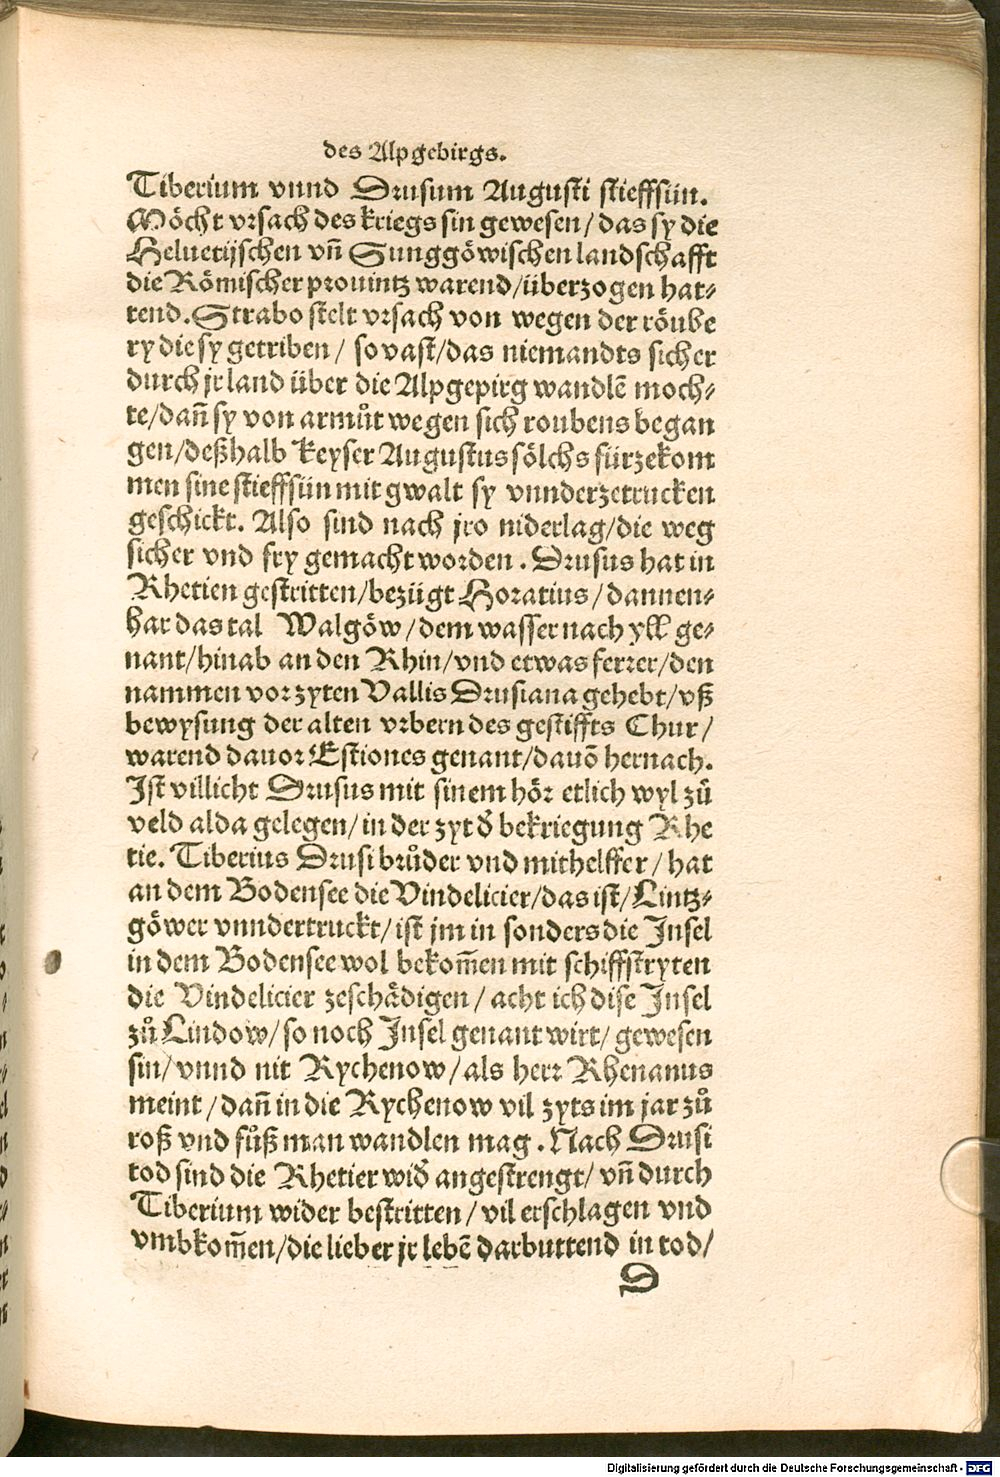 des Alpgebirgs.
Tiberium vnnd Drusum Augusti stieffsün.
Möcht vrsach des kriegs sin gewesen/das sy die
Heluetijschen vñ Sunggöwischen landschafft
die Römischer prouintz warend/überzogen hat⸗
tend. Strabo stelt vrsach von wegen der röube
ry die sy getriben/ so vast/das niemandts sicher
durch jr land über die Alpgepirg wandlē moch⸗
te/dañ sy von armůt wegen sich roubens began
gen/deßhalb keyser Augustus sölchs fürzekom
men sine stieffsün mit gwalt sy vnnderzetrucken
geschickt. Also sind nach jro niderlag/die weg
sicher vnd fry gemacht worden. Drusus hat in
Rhetien gestritten/bezügt Horatius/dannen⸗
har das tal Walgöw/dem wasser nach yll ge⸗
nant/hinab an den Rhin/vnd etwas ferrer/den
nammen vor zyten Vallis Drusiana gehebt/vß
bewysung der alten vrbern des gestiffts Chur/
warend dauor Estiones genant/dauō hernach.
Ist villicht Drusus mit sinem hör etlich wyl zů
veld alda gelegen/in der zyt d̕ bekriegung Rhe
tie. Tiberius Drusi brůder vnd mithelffer/hat
an dem Bodensee die Vindelicier/das ist/Lintz⸗
göwer vnndertruckt/ist jm in sonders die Insel
in dem Bodensee wol bekom̄en mit schiffstryten
die Vindelicier zeschädigen/acht ich dise Insel
zů Lindow/so noch Insel genant wirt/gewesen
sin/vnnd nit Rychenow/als herr Rhenanus
meint/dañ in die Rychenow vil zyts im jar zů
roß vnd fůß man wandlen mag. Nach Drusi
tod sind die Rhetier wid̕ angestrengt/vñ durch
Tiberium wider bestritten/vil erschlagen vnd
vmbkom̄en/die lieber jr lebē darbuttend in tod/
D
Digitalisierung gefördert durch die Deutsche Forschungsgemeinschaft - DFG